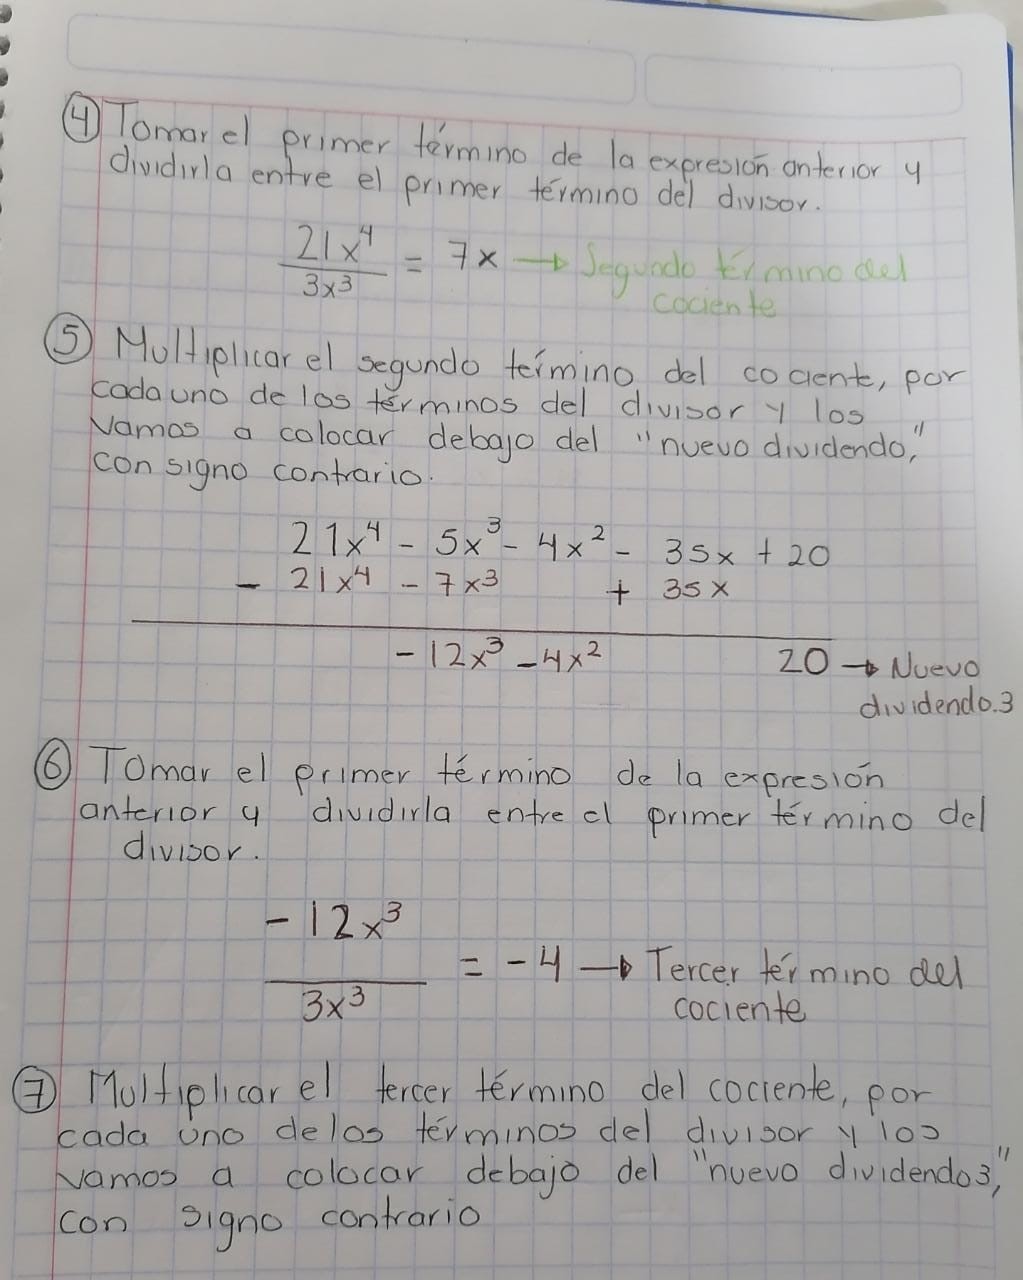 ④ Tomar el primer término de la expresión anterior y
dividirla entre el primer término del divisor.
21x⁴
3x³
= 7x → Segundo término del
cociente
⑤ Multiplicar el segundo término del cociente, por
cada uno de los términos del divisor y los
vamos a colocar debajo del "nuevo dividendo,"
con signo contrario.
21x⁴ - 5x³ - 4x² - 35x + 20
- 21x⁴ - 7x³ + 35x
-12x³ -4x² 20 → Nuevo
dividendo.3
⑥ Tomar el primer término de la expresión
anterior y dividirla entre el primer término del
divisor.
-12x³
3x³
= -4 → Tercer término del
cociente
⑦ Multiplicar el tercer término del cociente, por
cada uno de los términos del divisor y los
vamos a colocar debajo del "nuevo dividendo3,"
con signo contrario